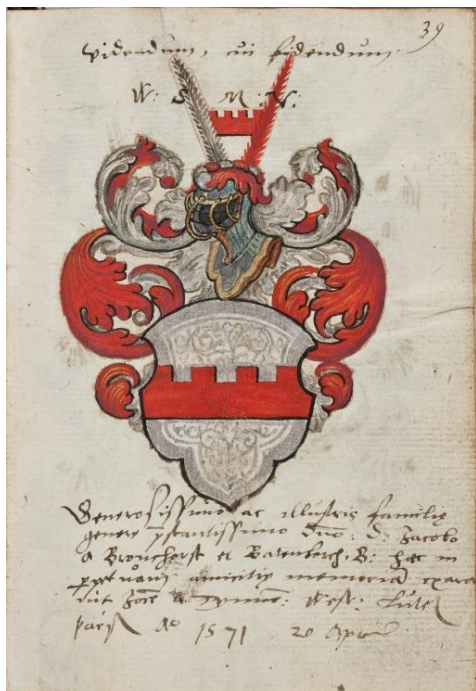 39
videndum, cui fidendum.
W: S M: V:
Generosissimo ac illustris familię
genere pstantissimo Dno: D: Jacobo
a Bronchorst et Batenborch: B: hęc in
ppetuam amicitię memoriā exara
uit
Lutet
Paris Ao 1571 20